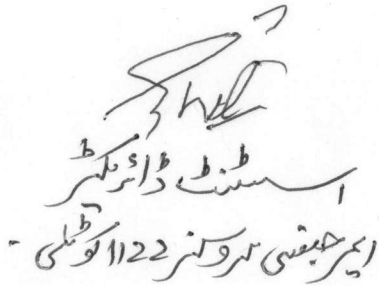 اسسٹنٹ ڈائریکٹر
ایمرجینسی سروسز 1122 کوٹلی۔